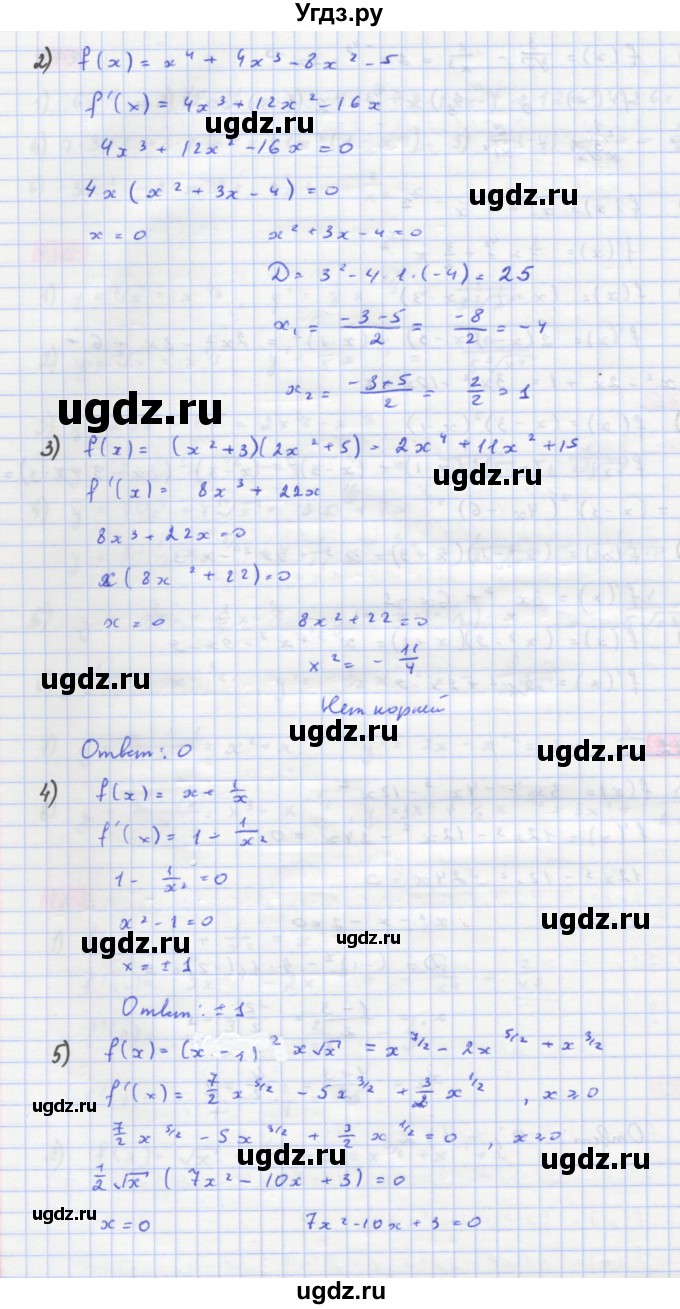 Угдз.ру
2) f(x) = x⁴ + 4x³ - 8x² - 5
f'(x) = 4x³ + 12x² - 16x
ugdz.ru
4x³ + 12x² - 16x = 0
4x(x² + 3x - 4) = 0
ugdz.ru
x = 0 x² + 3x - 4 = 0
D = 3² - 4·1·(-4) = 25
x₁ = (-3-5)/2 = -8/2 = -4
x₂ = (-3+5)/2 = 2/2 = 1
ugdz.ru
3) f(x) = (x²+3)(2x²+5) = 2x⁴ + 11x² + 15
ugdz.ru
f'(x) = 8x³ + 22x
8x³ + 22x = 0
x(8x² + 22) = 0
x = 0 8x² + 22 = 0
x² = - 11/4
ugdz.ru
Нет корней
ugdz.ru
Ответ: 0
ugdz.ru
4) f(x) = x + 1/x
f'(x) = 1 - 1/x²
1 - 1/x² = 0
x² - 1 = 0
ugdz.ru
ugdz.ru ugdz.ru
x = ± 1
Ответ: ± 1
5) f(x) = (x - 1)² x√x = x^7/2 - 2x^5/2 + x^3/2
f'(x) = 7/2 x^5/2 - 5x^3/2 + 3/2 x^1/2, x ≥ 0
ugdz.ru
7/2 x^5/2 - 5x^3/2 + 3/2 x^1/2 = 0, x ≥ 0
ugdz.ru ugdz.ru
1/2 √x (7x² - 10x + 3) = 0
ugdz.ru
x = 0 7x² - 10x + 3 = 0
ugdz.ru